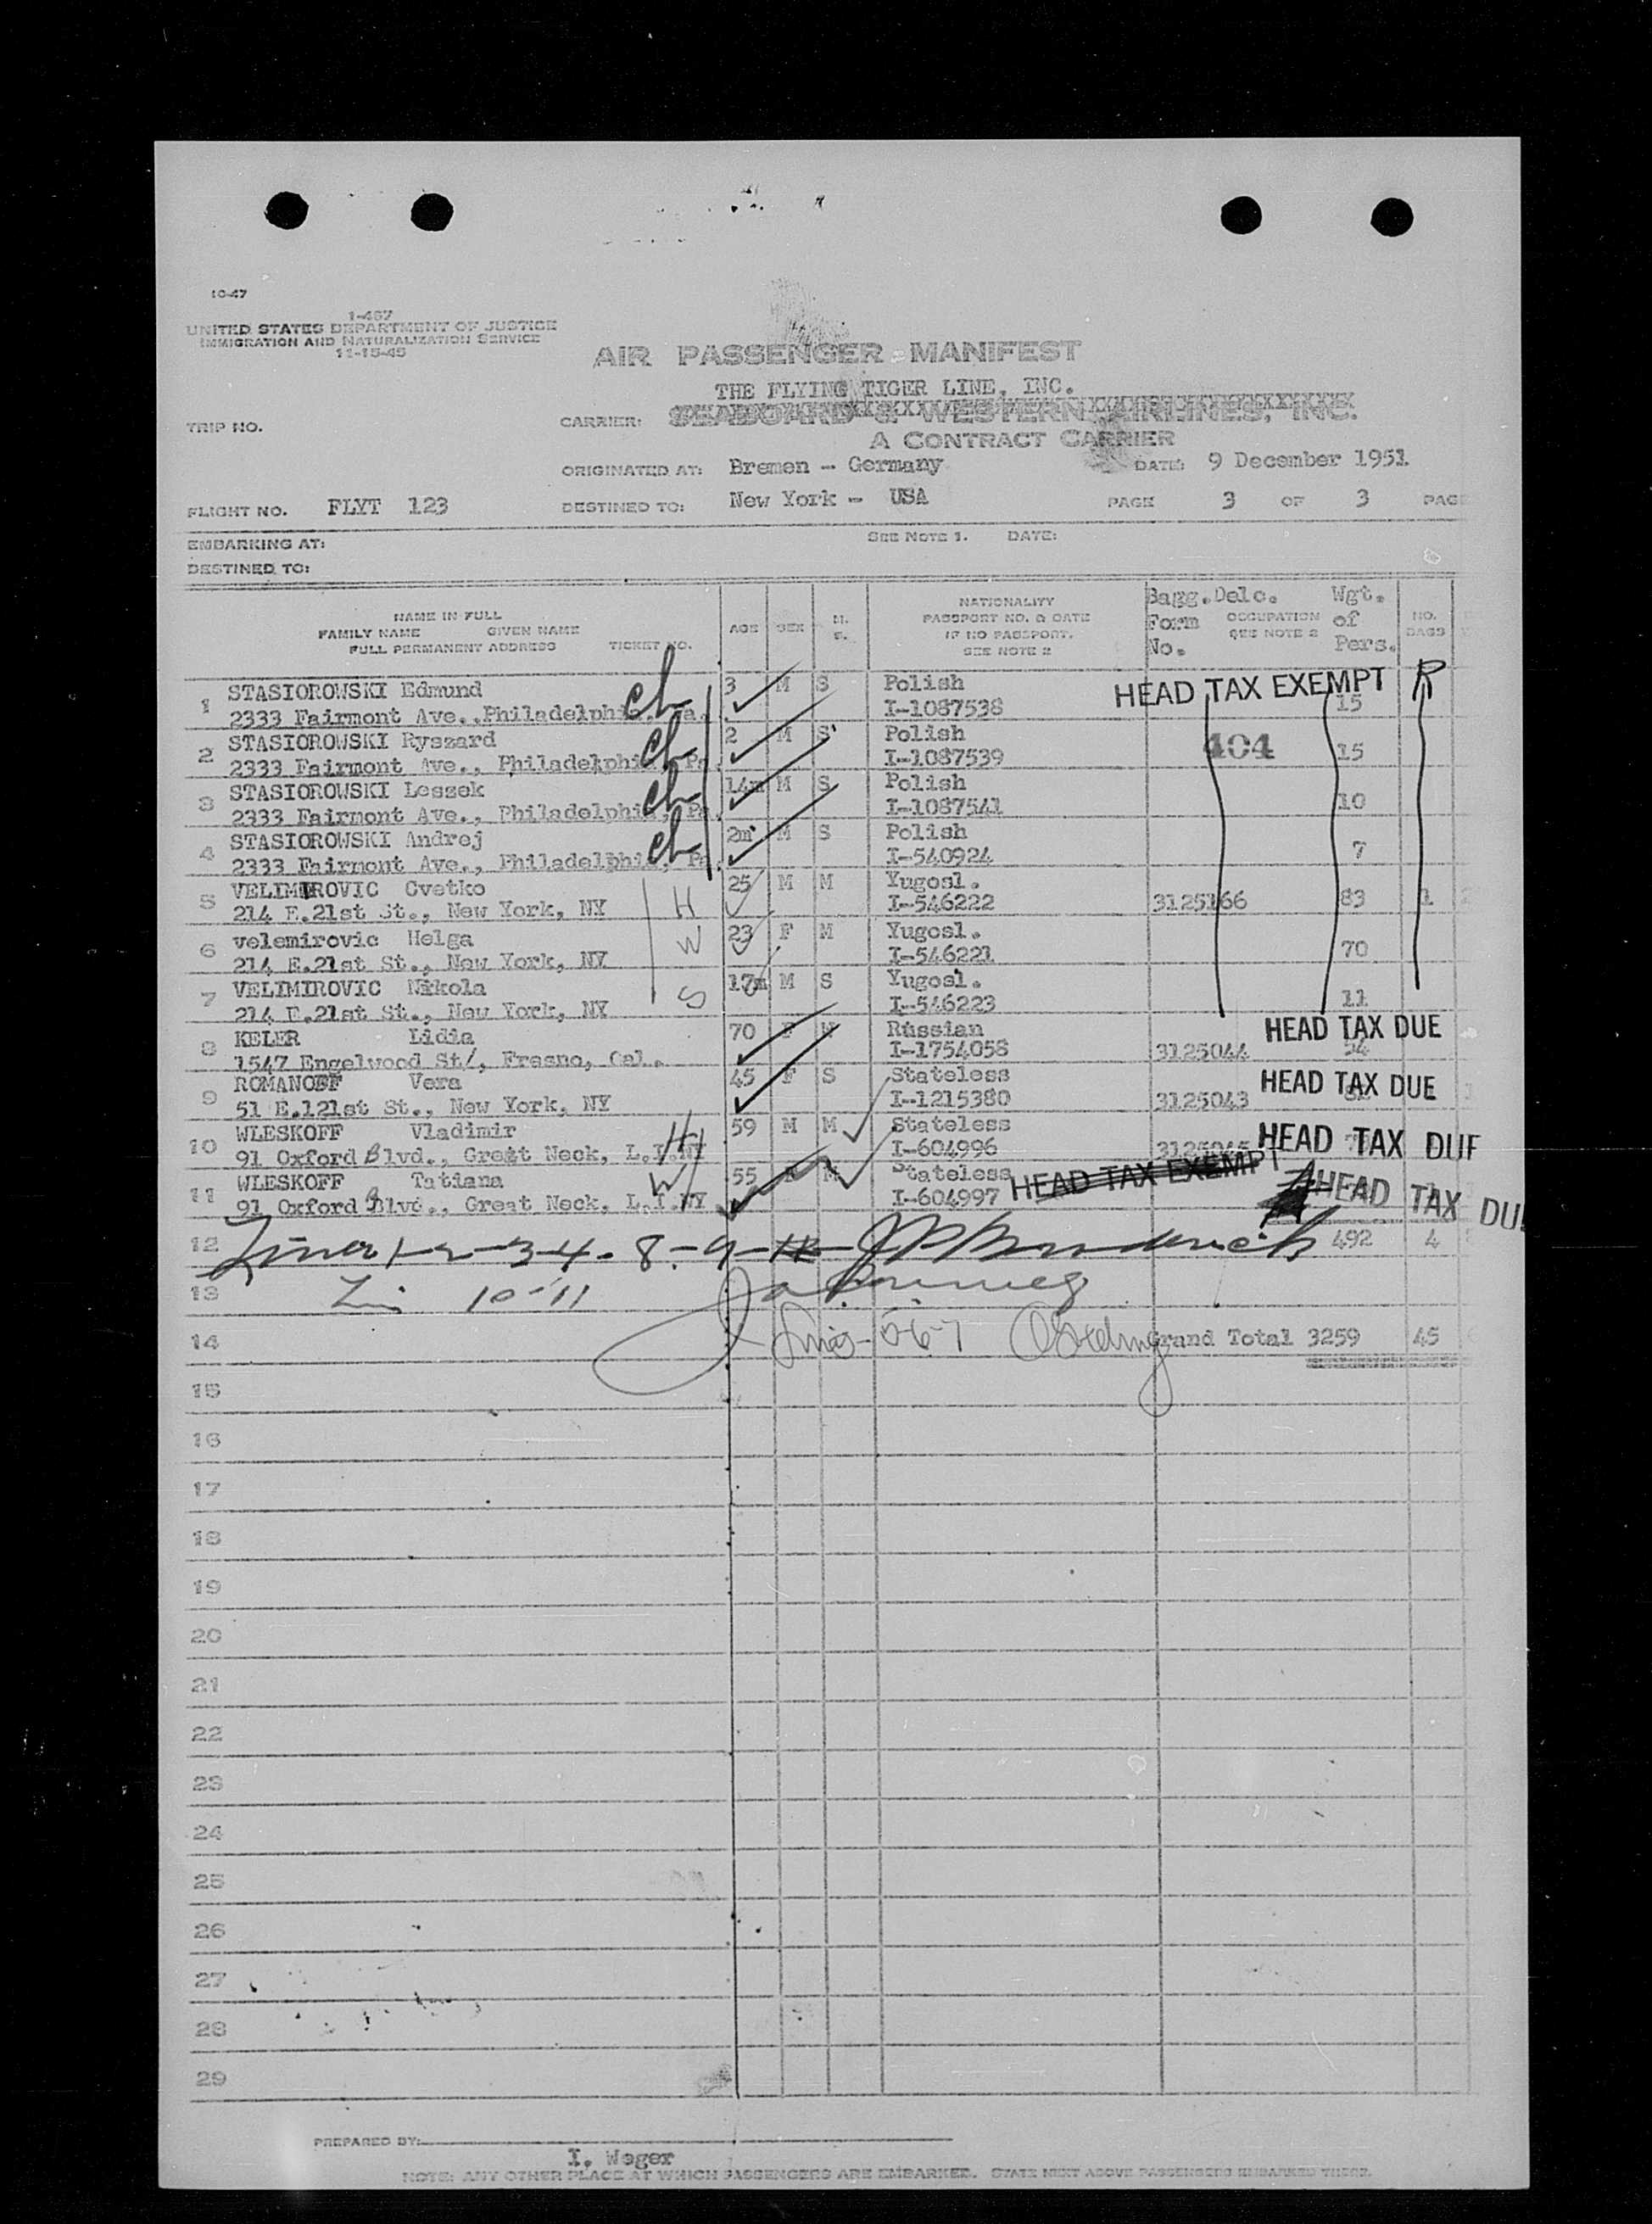 10-47
I-467
UNITED STATES DEPARTMENT OF JUSTICE
IMMIGRATION AND NATURALIZATION SERVICE
11-15-45
AIR PASSENGER MANIFEST
THE FLYING TIGER LINE, INC.
TRIP NO. CARRIER: SEABOARD & WESTERN AIRLINES, INC.
A CONTRACT CARRIER
ORIGINATED AT: Bremen - Germany DATE: 9 December 1951
FLIGHT NO. FLYT 123 DESTINED TO: New York - USA PAGE 3 OF 3 PAG
EMBARKING AT: SEE NOTE 1. DATE:
DESTINED TO:
NAME IN FULL
FAMILY NAME GIVEN NAME
FULL PERMANENT ADDRESS TICKET NO.
AGE SEX M. S.
NATIONALITY
PASSPORT NO. & DATE
IF NO PASSPORT.
SEE NOTE 2
Bagg. Delc.
Form
No.
OCCUPATION
SEE NOTE 2
Wgt.
of
Pers.
NO.
BAGS
1 STASIOROWSKI Edmund ch 3 M S Polish HEAD TAX EXEMPT R
2333 Fairmont Ave.,Philadelphia, Pa. I-1087538 15
2 STASIOROWSKI Ryszard ch 2 M S Polish 404
2333 Fairmont Ave., Philadelphia, Pa. I-1087539 15
3 STASIOROWSKI Leszek ch 14m M S Polish
2333 Fairmont Ave., Philadelphia, Pa. I-1087541 10
4 STASIOROWSKI Andrej ch 2m M S Polish
2333 Fairmont Ave., Philadelphia, Pa. I-540924 7
5 VELIMIROVIC Cvetko H 25 M M Yugosl.
214 E.21st St., New York, NY I-546222 3125166 83 1
6 velemirovic Helga W 23 F M Yugosl.
214 E.21st St., New York, NY I-546221 70
7 VELIMIROVIC Nikola S 17m M S Yugosl.
214 E.21st St., New York, NY I-546223 11
8 KELER Lidia 70 F M Russian HEAD TAX DUE
1547 Engelwood St/, Fresno, Cal.. I-1754058 3125044 54
9 ROMANOFF Vera 45 F S Stateless HEAD TAX DUE
51 E.121st St., New York, NY I-1215380 3125043
10 WLESKOFF Vladimir H 59 M M Stateless HEAD TAX DUE
91 Oxford Blvd., Great Neck, L.I.NY I-604996 3125045
11 WLESKOFF Tatiana W 55 F M Stateless HEAD TAX EXEMPT
91 Oxford Blvd., Great Neck, L.I.NY I-604997 HEAD TAX DU
12 Lines 1-2-3-4-8-9 492 4
13 Li 10-11
14 Lines 5-6-7 Grand Total 3259 45
15
16
17
18
19
20
21
22
23
24
25
26
27
28
29
PREPARED BY:
I. Weger
NOTE: ANY OTHER PLACE AT WHICH PASSENGERS ARE EMBARKED. STATE NEXT ABOVE PASSENGERS EMBARKED THERE.